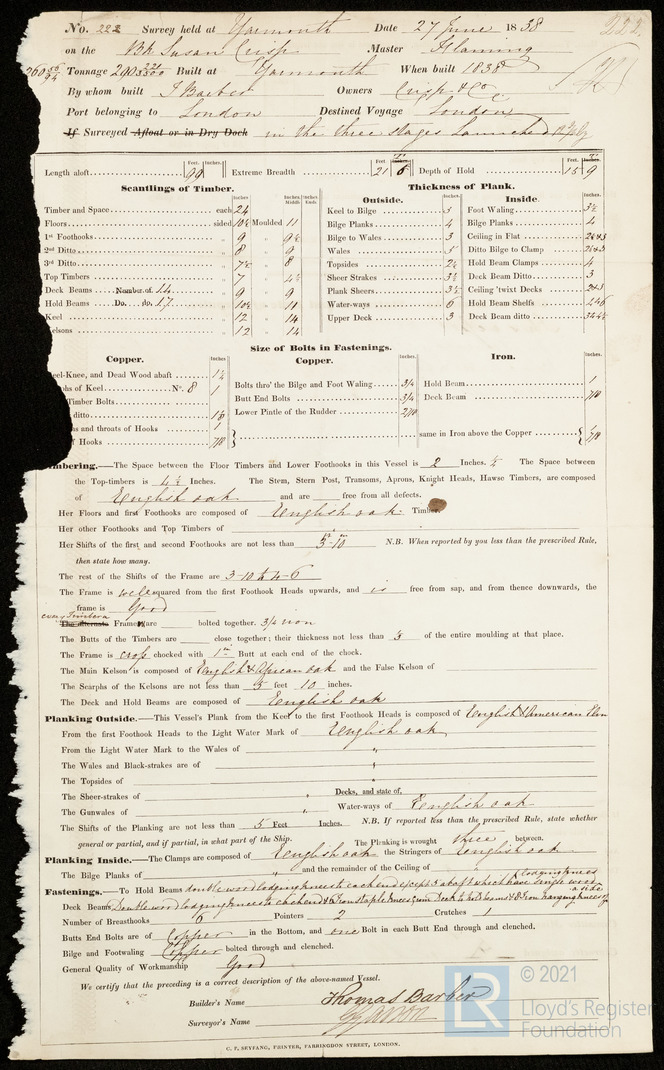 No. 222 Survey held at Yarmouth Date 27 June 1838 222
on the Bk Susan Crisp Master Flaming
Tonnage 290 Built at Yarmouth When built 1838
By whom built T Barber Owners Crisp & Co
Port belonging to London Destined Voyage London
If Surveyed Afloat or in Dry Dock in the three stages Launched
Length aloft 99 Extreme Breadth 21 6 Depth of Hold 15 9
Feet. Inches.
Scantlings of Timber.
Timber and Space each 24
Floors sided 10½ Moulded 11
1st Foothooks 9 9½
2nd Ditto 8 9
3rd Ditto 7½ 8
Top Timbers 7 4½
Deck Beams Number of 14 9 9
Hold Beams Do. do. 17 10½ 11
Keel 12 14
Kelsons 12 14
Thickness of Plank.
Outside.
Keel to Bilge 3
Bilge Planks 4
Bilge to Wales 3
Wales 5
Topsides 2½
Sheer Strakes 3½
Plank Sheers 3½
Water-ways 6
Upper Deck 3
Inside.
Foot Waling 3½
Bilge Planks 4
Ceiling in Flat 2½&3
Ditto Bilge to Clamp 2½&3
Hold Beam Clamps 4
Deck Beam Ditto 3
Ceiling 'twixt Decks
Hold Beam Shelfs
Deck Beam ditto
Size of Bolts in Fastenings.
Copper.
Heel-Knee, and Dead Wood abaft 1¼
Scarphs of Keel No. 8 1
Timber Bolts
ditto
and throats of Hooks 1
of Hooks 7/8
Copper.
Bolts thro' the Bilge and Foot Waling 3/4
Butt End Bolts 3/4
Lower Pintle of the Rudder
Iron.
Hold Beam 1
Deck Beam 7/8
same in Iron above the Copper
Timbering.—The Space between the Floor Timbers and Lower Foothooks in this Vessel is 2 Inches. ½ The Space between
the Top-timbers is 4½ Inches. The Stem, Stern Post, Transoms, Aprons, Knight Heads, Hawse Timbers, are composed
of English oak and are free from all defects.
Her Floors and first Foothooks are composed of English oak Timber
Her other Foothooks and Top Timbers of
Her Shifts of the first and second Foothooks are not less than 3 10 N.B. When reported by you less than the prescribed Rule,
then state how many.
The rest of the Shifts of the Frame are 3-10 to 4-6
The Frame is well squared from the first Foothook Heads upwards, and is free from sap, and from thence downwards, the
frame is Good
every Timbers
The alternate Frames are bolted together. 3/4 iron
The Butts of the Timbers are close together; their thickness not less than ⅓ of the entire moulding at that place.
The Frame is crop chocked with 1 Butt at each end of the chock.
The Main Kelson is composed of English & African oak and the False Kelson of
The Scarphs of the Kelsons are not less than 5 feet 10 inches.
The Deck and Hold Beams are composed of English oak
Planking Outside.—This Vessel's Plank from the Keel to the first Foothook Heads is composed of English & American Elm
From the first Foothook Heads to the Light Water Mark of English oak
From the Light Water Mark to the Wales of "
The Wales and Black-strakes are of "
The Topsides of "
The Sheer-strakes of " Decks, and state of,
The Gunwales of " Water-ways of English oak
The Shifts of the Planking are not less than 5 Feet Inches. N.B. If reported less than the prescribed Rule, state whether
general or partial, and if partial, in what part of the Ship. The Planking is wrought three between.
Planking Inside.—The Clamps are composed of English oak the Stringers of English oak
The Bilge Planks of " and the remainder of the Ceiling of "
lodging knees
Fastenings.—To Hold Beams double wood lodging knees to each end except 3 abaft which have single wood
a side
Deck Beams Double wood lodging knees to each end & 6 Iron staple knees from Deck to Hold beams & 8 Iron hanging knees
Number of Breasthooks 6 Pointers 2 Crutches 1
Butts End Bolts are of Copper in the Bottom, and one Bolt in each Butt End through and clenched.
Bilge and Footwaling Copper bolted through and clenched.
General Quality of Workmanship Good
We certify that the preceding is a correct description of the above-named Vessel.
Builder's Name Thomas Barber
Surveyor's Name
C. F. SEYFANG, PRINTER, FARRINGDON STREET, LONDON.
LR © 2021
Lloyd's Register
Foundation